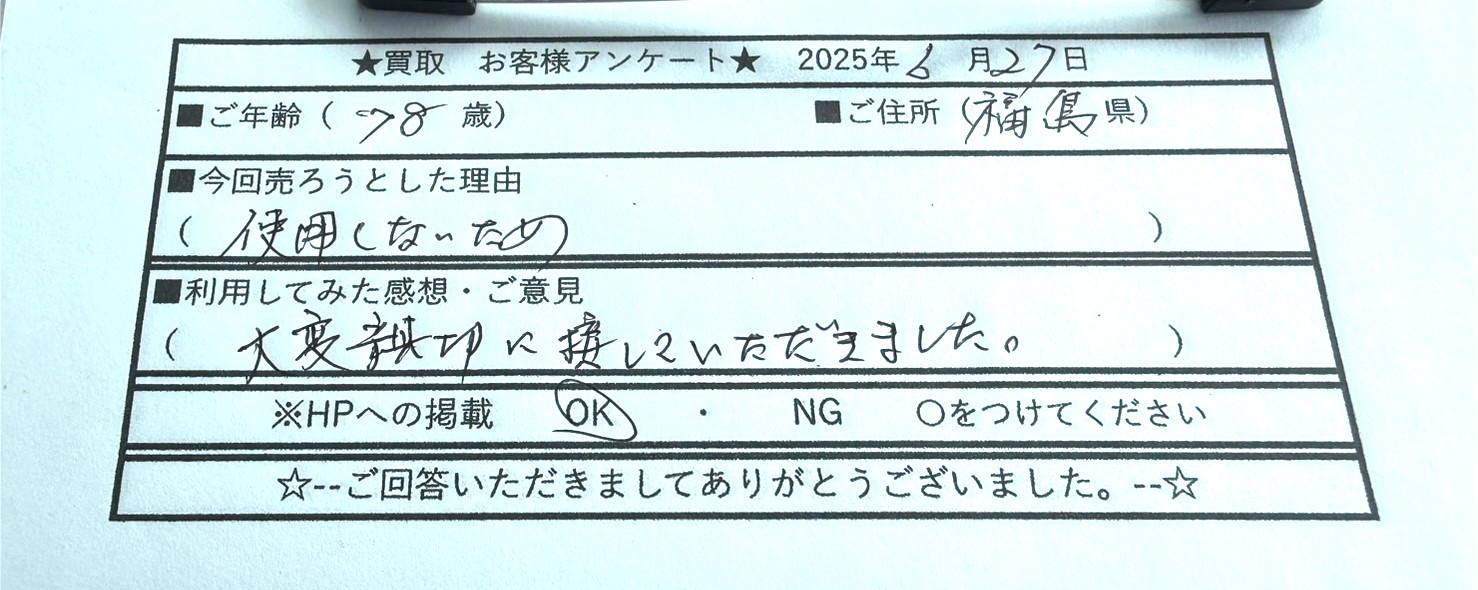 ★買取 お客様アンケート★ 2025年6月27日
■ご年齢（78歳） ■ご住所（福島県）
■今回売ろうとした理由
（使用しないため）
■利用してみた感想・ご意見
（大変親切に接していただきました。）
※HPへの掲載 OK ・ NG ○をつけてください
☆--ご回答いただきましてありがとうございました。--☆